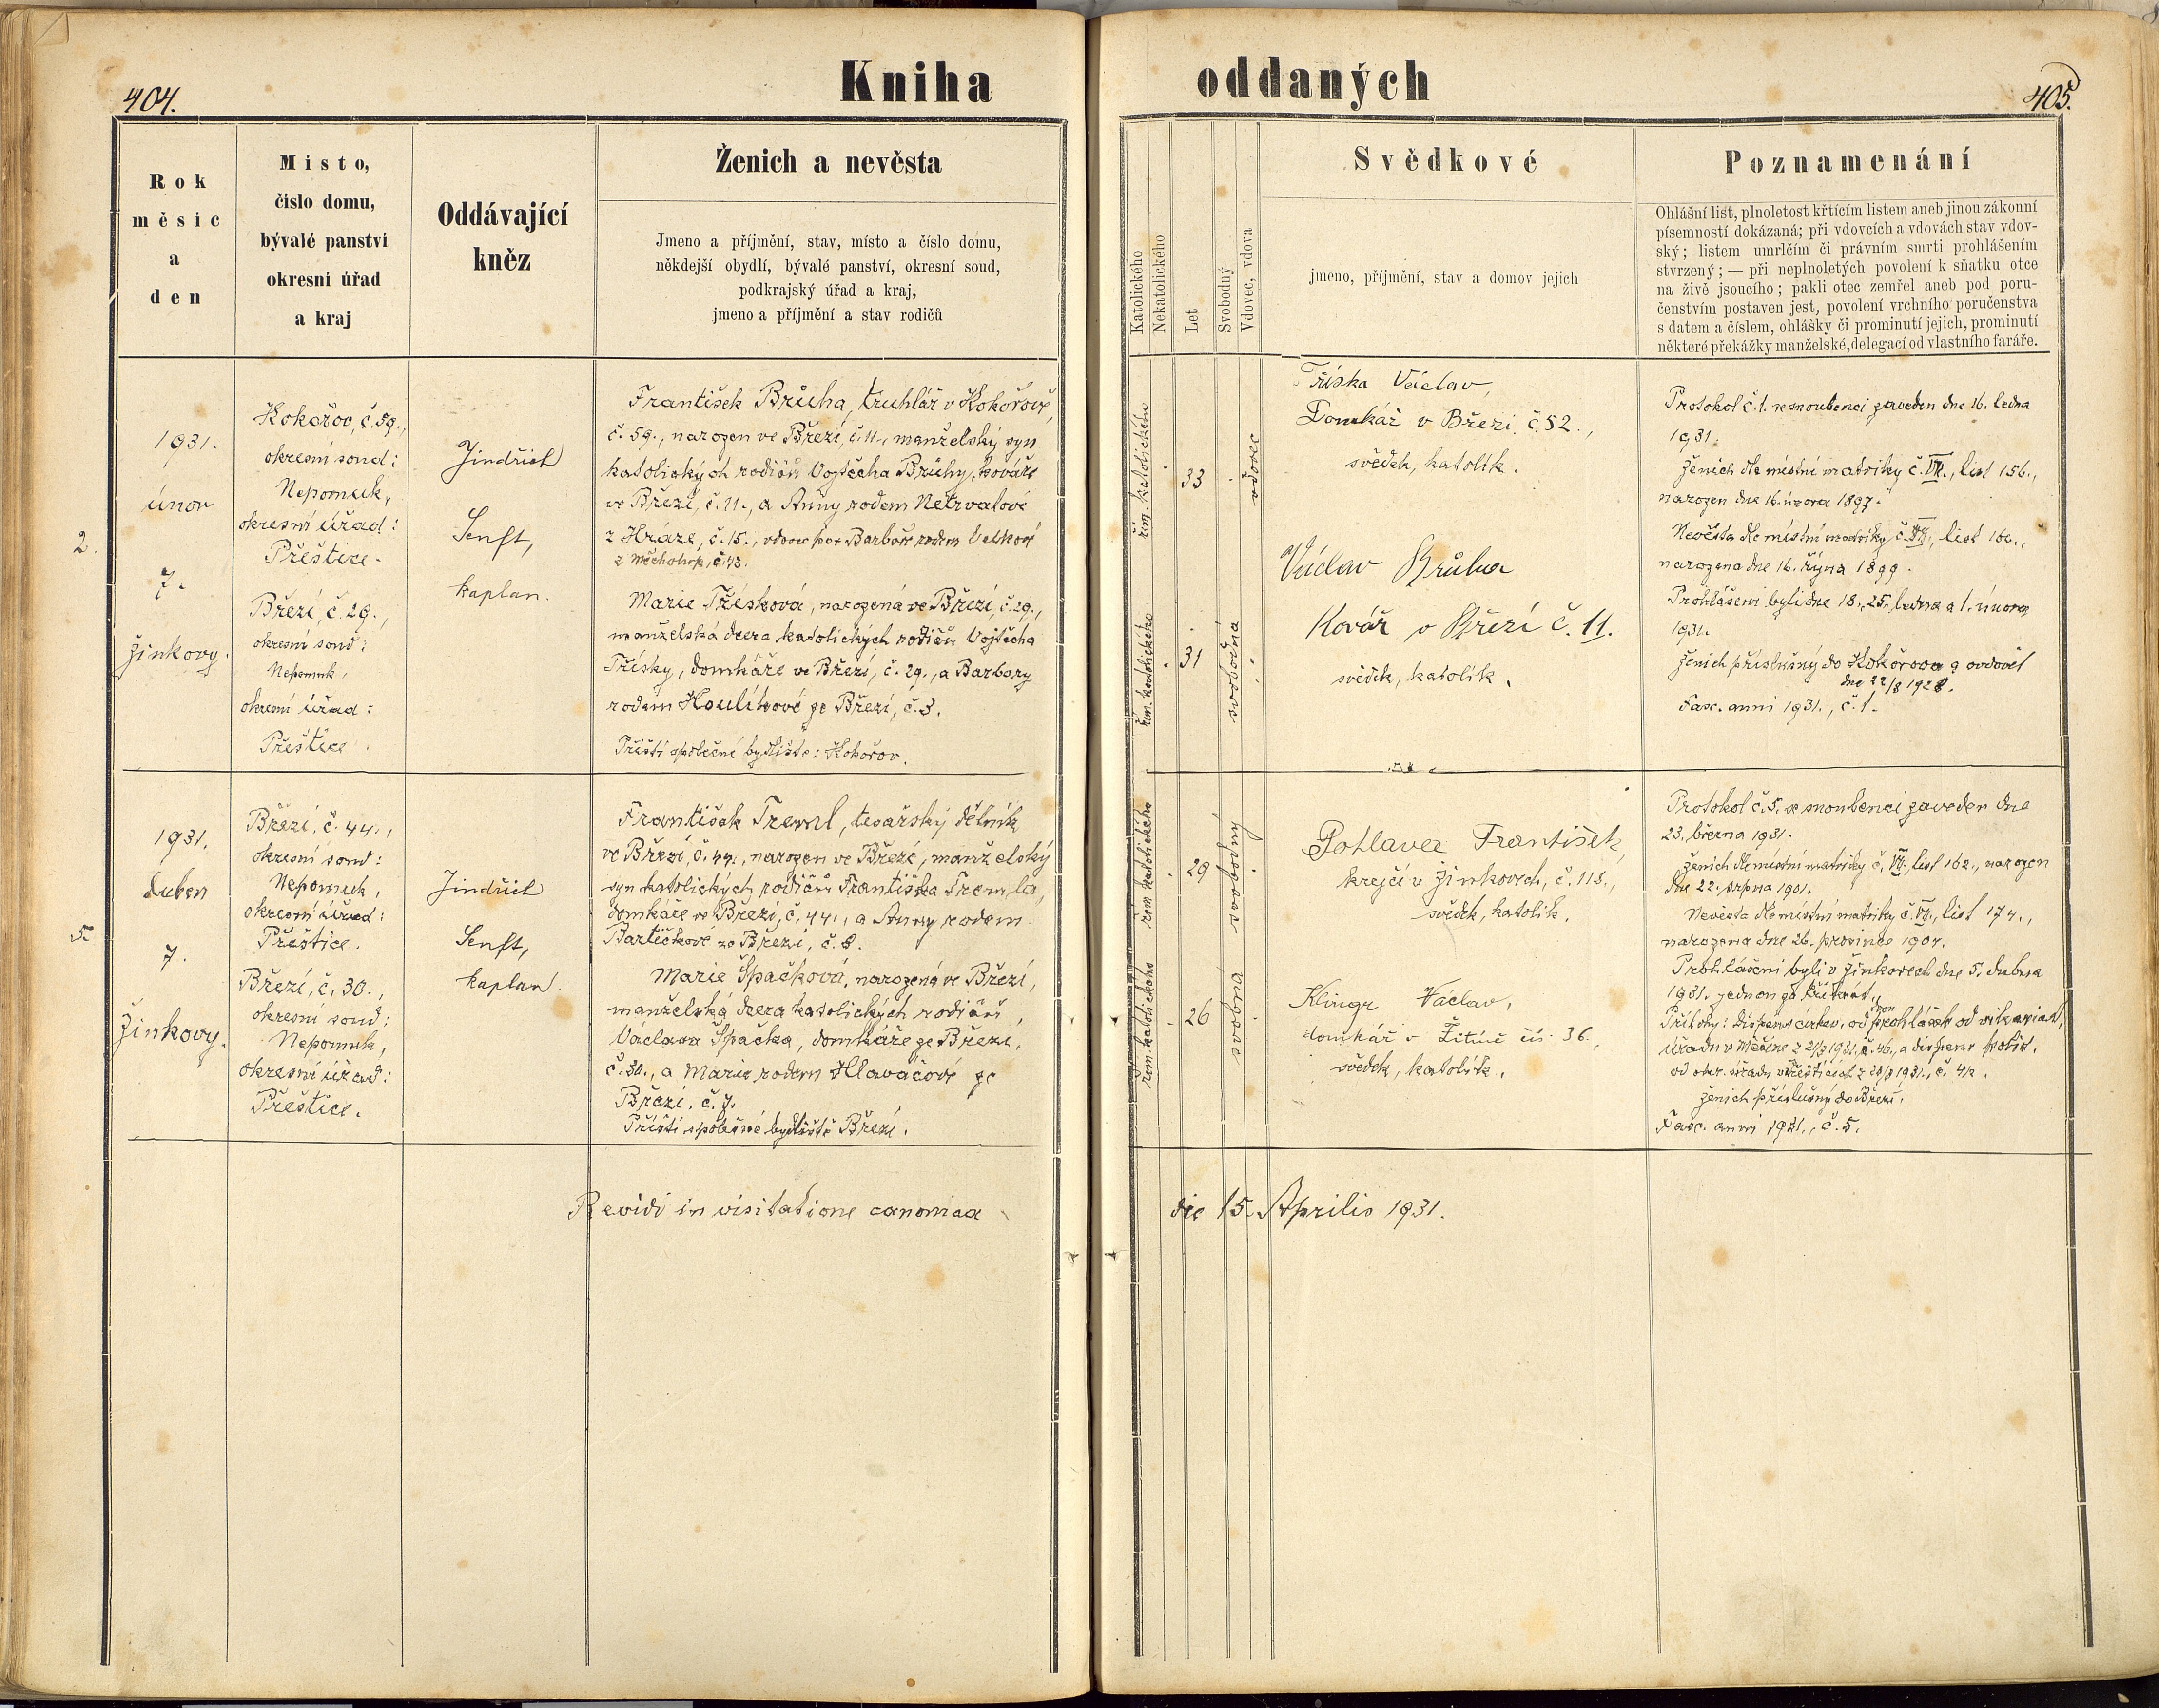 404.
Kniha
oddaných
405.
Rok
měsíc
a
den
Místo,
číslo domu,
bývalé panství
okresní úřad
a kraj
Oddávající
kněz
Ženich a nevěsta
Jmeno a příjmění, stav, místo a číslo domu,
někdejší obydlí, bývalé panství, okresní soud,
podkrajský úřad a kraj,
jmeno a příjmění a stav rodičů
Katolického
Nekatolického
Let
Svobodný
Vdovec, vdova
Svědkové
jmeno, příjmění, stav a domov jejich
Poznamenání
Ohlášní list, plnoletost křtícím listem aneb jinou zákonní
písemností dokázaná; při vdovcích a vdovách stav vdov-
ský; listem umrlčím či právním smrti prohlášením
stvrzený; — při neplnoletých povolení k sňatku otce
na živě jsoucího; pakli otec zemřel aneb pod poru-
čenstvím postaven jest, povolení vrchního poručenstva
s datem a číslem, ohlášky či prominutí jejich, prominutí
některé překážky manželské, delegací od vlastního faráře.
2.
1931.
únor
7.
Žinkovy.
Kokořov, č. 59.,
okresní soud:
Nepomuk,
okresní úřad:
Přeštice.
Březí, č. 29.,
okresní soud:
Nepomuk,
okresní úřad:
Přeštice.
Jindřich
Senft,
kaplan.
František Brůha, truhlář v Kokořově,
č. 59., narozen ve Březí, č. 11., manželský syn
katolických rodičů Vojtěcha Brůhy, kováře
ve Březí, č. 11., a Anny rodem Netrvalové
z Hráze, č. 15., vdovec po Barboře rodem
z Měcholup, č. 42.
Marie Třísková, narozená ve Březí, č. 29.,
manželská dcera katolických rodičů Vojtěcha
Třísky, domkáře ve Březí, č. 29., a Barbory
rodem Houlíkové ze Březí, č. 3.
Příští společné bydliště: Kokořov.
řím. katolického
33
vdovec
řím. katolického
31
svobodná
Tříska Václav,
Domkář v Březí č. 52.,
svědek, katolík.
Václav Brůha
Kovář v Březí č. 11.
svědek, katolík.
Protokol č. 1. se snoubenci zaveden dne 16. ledna
1931.
Ženich dle místní matriky č. VII., list 156.,
narozen dne 16. února 1897.
Nevěsta dle místní matriky č. VII., list 166.,
narozena dne 16. října 1899.
Prohlášeni byli dne 18., 25. ledna a 1. února
1931.
Ženich příslušný do Kokořova a ovdověl
dne 22/8 1928.
Fasc. anni 1931., č. 1.
5.
1931.
duben
7.
Žinkovy.
Březí, č. 44.,
okresní soud:
Nepomuk,
okresní úřad:
Přeštice.
Březí, č. 30.,
okresní soud:
Nepomuk,
okresní úřad:
Přeštice.
Jindřich
Senft,
kaplan.
František Treml, tesařský dělník
ve Březí, č. 44., narozen ve Březí, manželský
syn katolických rodičů Františka Tremla,
domkáře ve Březí, č. 44., a Anny rodem
Bartičkové ze Březí, č. 8.
Marie Špačková, narozená ve Březí,
manželská dcera katolických rodičů
Václava Špačka, domkáře ze Březí,
č. 30., a Marie rodem Hlaváčové ze
Březí, č. 7.
Příští společné bydliště Březí.
řím. katolického
29
svobodný
řím. katolického
26
svobodná
Pohlavec František,
krejčí v Žinkovech, č. 118.,
svědek, katolík.
Klinge Václav,
domkář v Žitíně čís. 36.,
svědek, katolík.
Protokol č. 5. se snoubenci zaveden dne
23. března 1931.
Ženich dle místní matriky č. VII., list 162., narozen
dne 22. srpna 1901.
Nevěsta dle místní matriky č. VII., list 174.,
narozena dne 26. prosince 1904.
Prohlášeni byli v Žinkovech dne 5. dubna
1931. jednou za třikrát.
Přílohy: dispens církev. od dvou prohlášek od vikariát.
úřadu v Měčíně z 21/3 1931, č. 46., a dispens polit.
od okr. úřadu v Přešticích z 28/3 1931., č. 4/2.
Ženich příslušný do Březí.
Fasc. anni 1931., č. 5.
Revidi in visitatione canonica
die 15. Aprilis 1931.